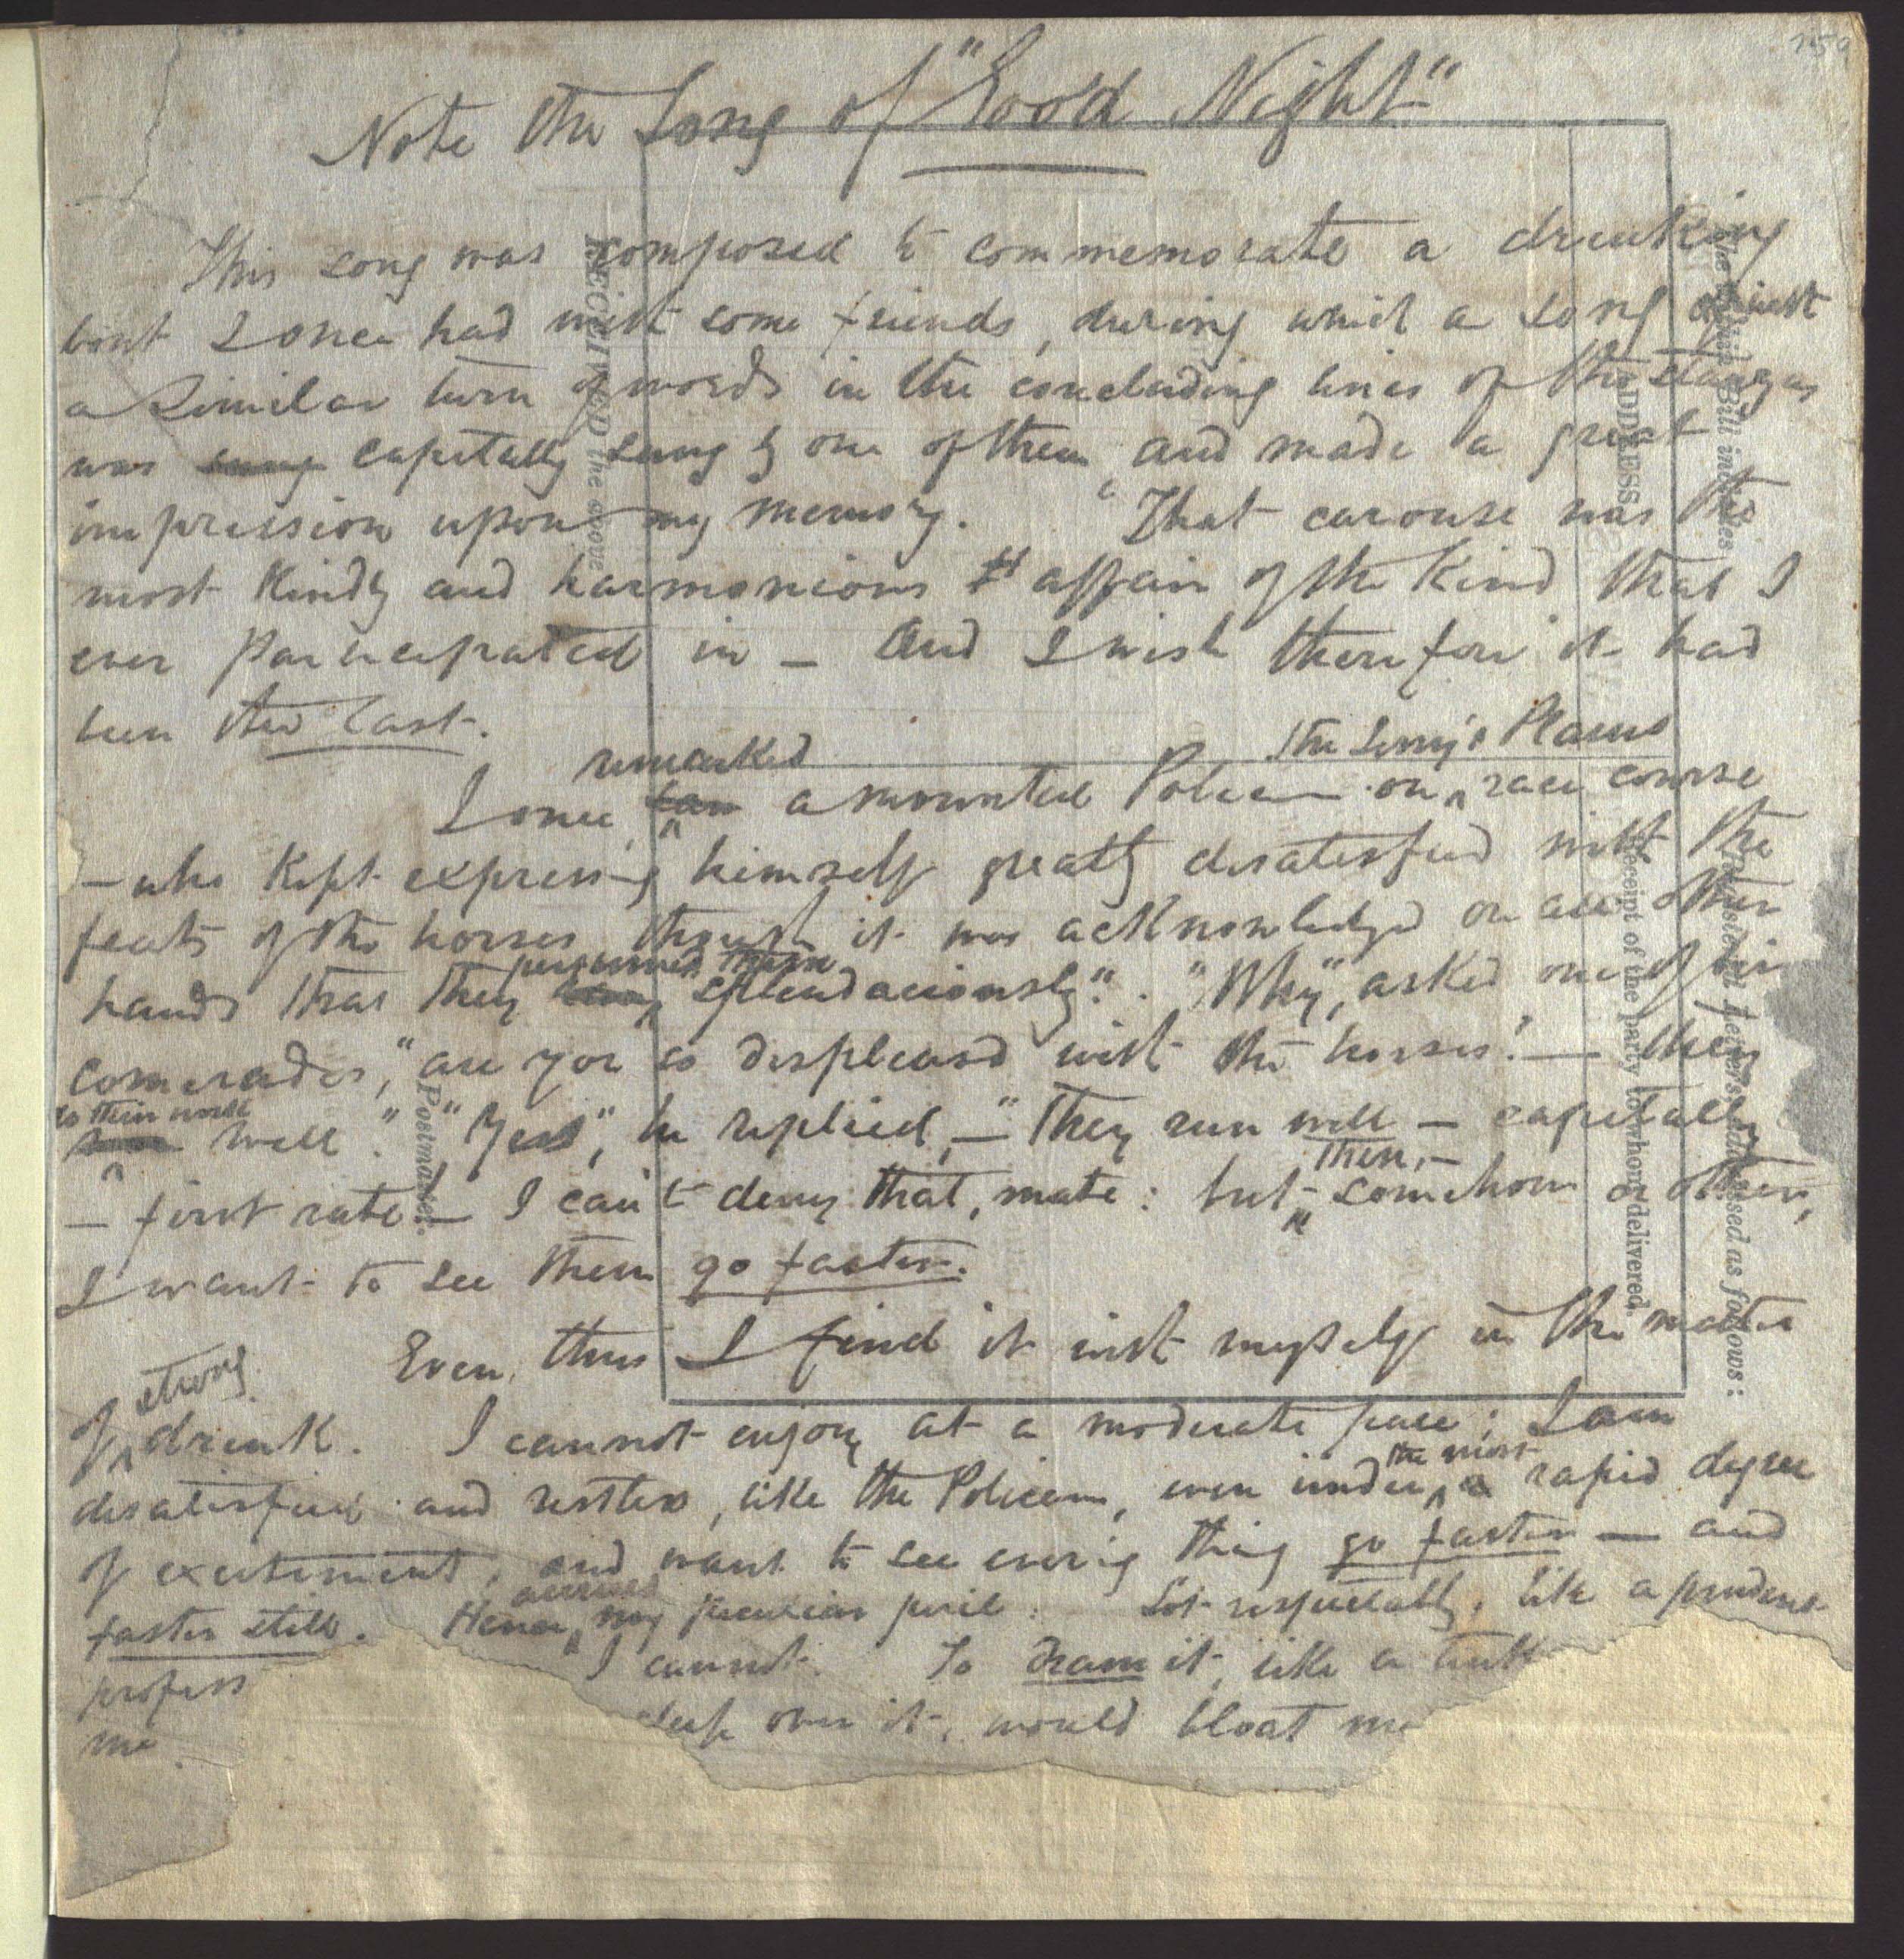 259
Note the Song of "Good Night"
This song was composed to commemorate a drinking
bout I once had with some friends, during which a song of just
a similar turn of words in the concluding lines of the stanzas
was sung capitally sung by one of them and made a great
impression upon my memory. That carouse was the
most kindly and harmonious affair of the kind that I
ever participated in — And I wish therefore it had
been the last.
remarked the Lenny's Plains
I once saw a mounted Policeman on race course
— who kept expressing himself greatly disatisfied with the
feats of the horses though it was acknowledged on all other
hands that they performed them splendaciously". "Why", asked one of his
comerades, "are you so displeased with the horses? — they
do their work
well." "Yes", he replied, — "They run well — capitally
then, —
— first rate — I can't deny that, mate: but somehow or other,
I want to see them go faster.
Even thus I find it with myself in the matter
strong
of drink. I cannot enjoy at a moderate pace; I am
the most
disatisfied and restless, like the Policeman, even under a rapid degree
of excitement, and want to see every thing go faster — and
accrues
faster still. Hence my peculiar peril. Sot respectably, like a prudent
profess I cannot. To dram it, like a
me. over it, would bloat me
RECEIVED the above
Postmaster.
ADDRESS
Receipt of the party to whom delivered.
The within Bill includes
addressed as follows: